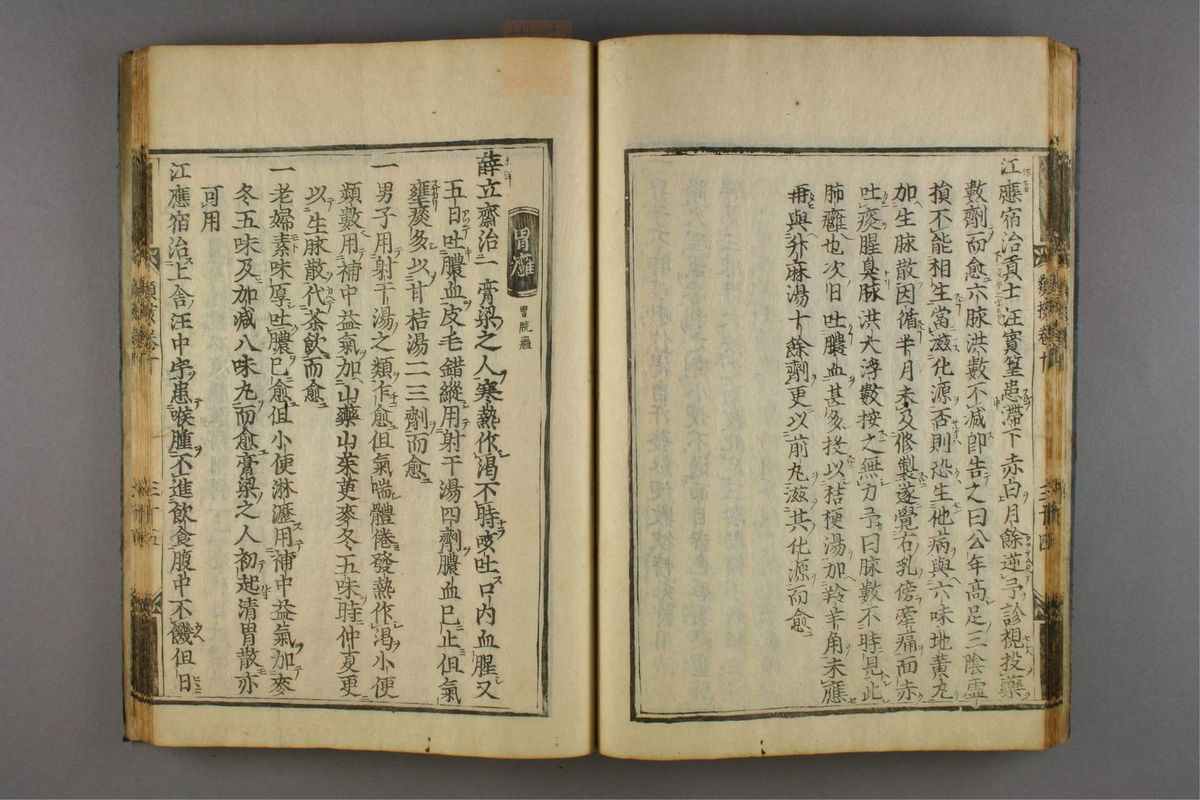 江應宿治貢士汪賓篁患滯下赤白月餘逆予診視投藥
數劑而愈六脉洪數不減卽告之曰公年高足三陰虛
損不能相生當滋化源否則恐生他病與六味地黃丸
加生脉散因循半月未及修製遂覺右乳傍牽痛面赤
吐痰腥臭脉洪大浮數按之無力予曰脉數不時見此
肺癰也次日吐膿血甚多投以桔梗湯加羚羊角未應
再與升麻湯十餘劑更以前丸滋其化源而愈
胃癰
胃脘癰
薛立齋治一膏梁之人寒熱作渴不時咳吐口內血腥又
五日吐膿血皮毛錯縱用射干湯四劑膿血已止但氣
壅痰多以甘桔湯二三劑而愈
一男子用射干湯之類乍愈但氣喘體倦發熱作渴小便
頻數用補中益氣加山藥山茱萸麥冬五味時仲夏更
以生脉散代茶飲而愈
一老婦素味厚吐膿已愈但小便淋瀝用補中益氣加麥
冬五味及加減八味丸而愈膏梁之人初起清胃散亦
可用
江應宿治上舍汪中宇患喉腫不進飲食腹中不饑但日